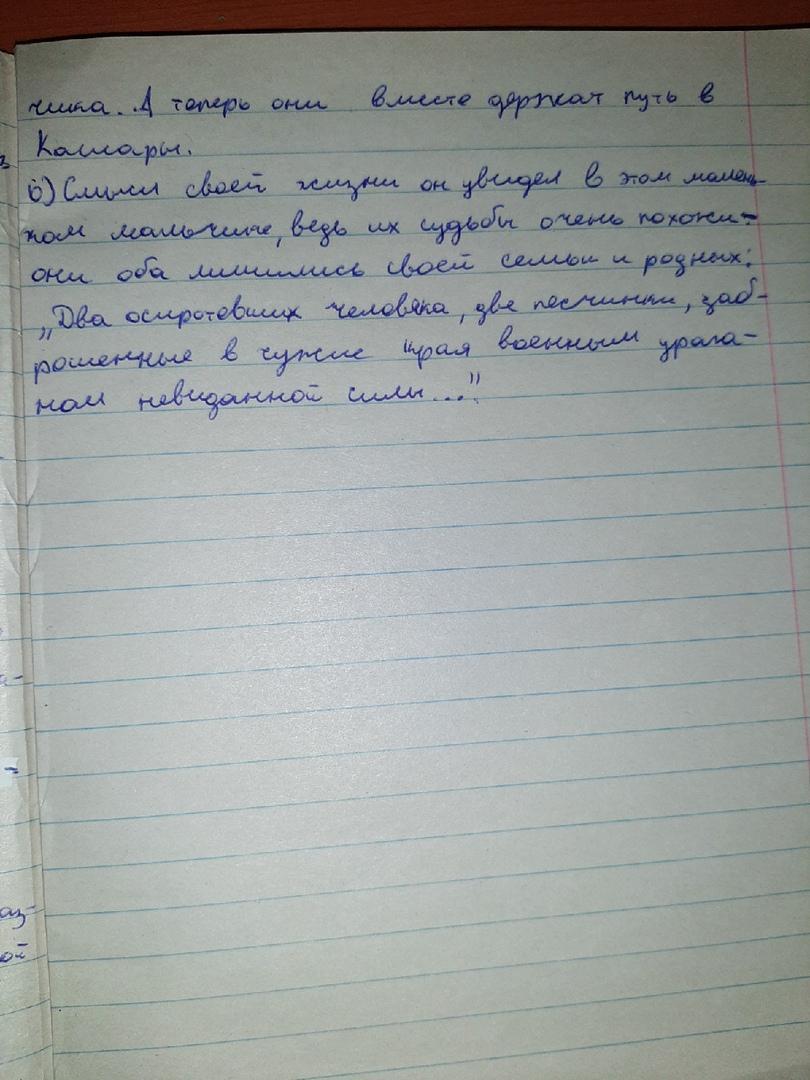 чика. А теперь они вместе держат путь в
Кашары.
б) Смысл своей жизни он увидел в этом малень-
ком мальчике, ведь их судьбы очень похожи -
они оба лишились своей семьи и родных:
„Два осиротевших человека, две песчинки, заб-
рошенные в чужие края военным урага-
ном невиданной силы..."
з
аз-
ой